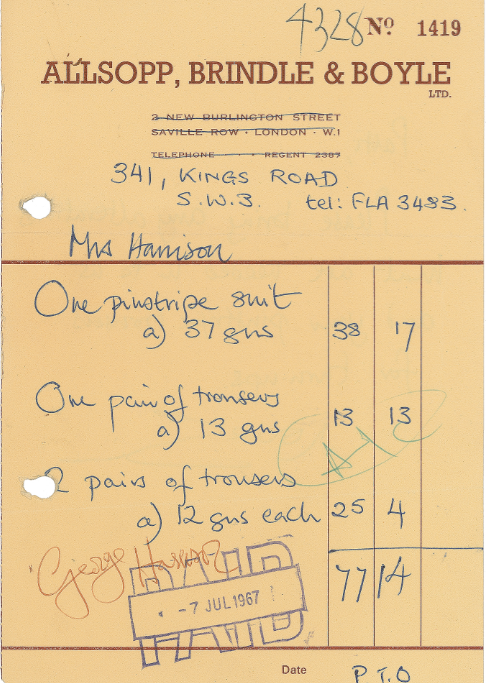 4328 No 1419
ALLSOPP, BRINDLE & BOYLE
LTD.
3 NEW BURLINGTON STREET
SAVILLE ROW · LONDON · W.1
TELEPHONE REGENT 2387
341, KINGS ROAD
S.W.3. tel: FLA 3483.
Mrs Harrison
One pinstripe suit
a) 37 gns 38 17
One pair of trousers
a) 13 gns 13 13
2 pairs of trousers
a) 12 gns each 25 4
George Harrison
77 14
PAID
- 7 JUL 1967
PAID
Date P T.O